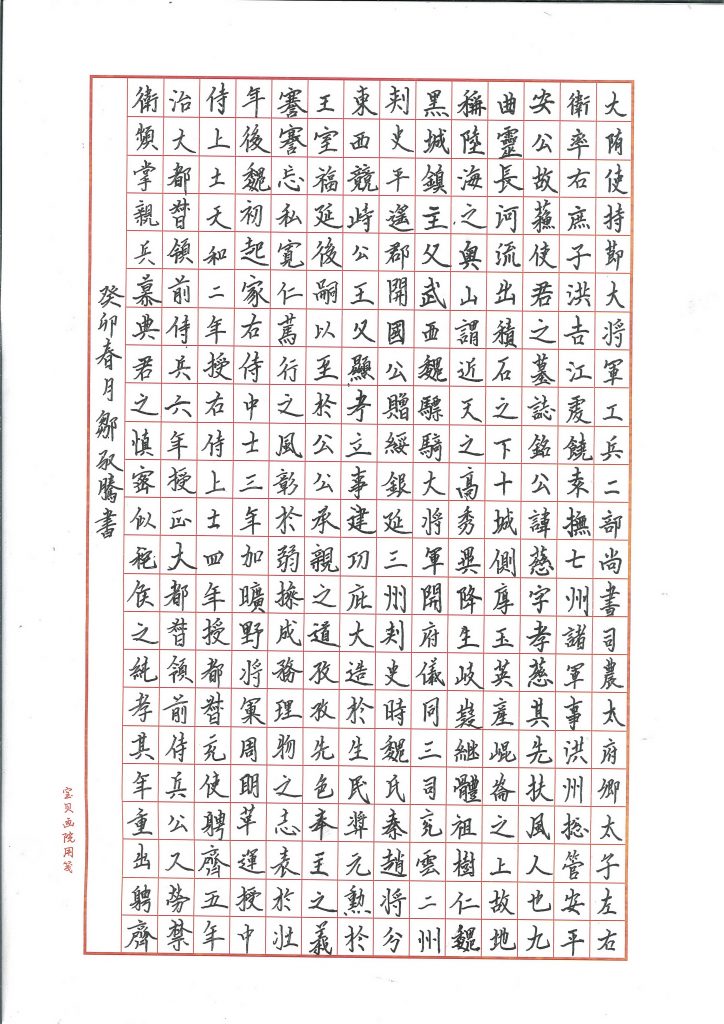 大隋使持節大將軍工兵二部尚書司農太府卿太子左右
衛率右庶子洪吉江虔饒袁撫七州諸軍事洪州揔管安平
安公故蘇使君之墓誌銘公諱慈字孝慈其先扶風人也九
曲靈長河流出積石之下十城側厚玉英產崐崘之上故地
稱陸海之奧山謂近天之高秀異降生岐嶷継體祖樹仁魏
黑城鎮主父武西魏驃騎大將軍開府儀同三司兗雲二州
刾史平遙郡開國公贈綏銀延三州刾史時魏氏秦趙將分
東西競峙公王父顯考立事建功庇大造於生民奬元勲於
王室福延後嗣以至於公公承親之道孜孜先色奉主之義
謇謇忘私寬仁篤行之風彰於弱操成務理物之志表於壯
年後魏初起家右侍中士三年加曠野將軍周明革運授中
侍上士天和二年授右侍上士四年授都督充使聘齊五年
治大都督領前侍兵六年授正大都督領前侍兵公又勞禁
衛頻掌親兵慕典君之慎密似秺侯之純孝其年重出聘齊
癸卯春月鄒騰書
宝贝画院用笺